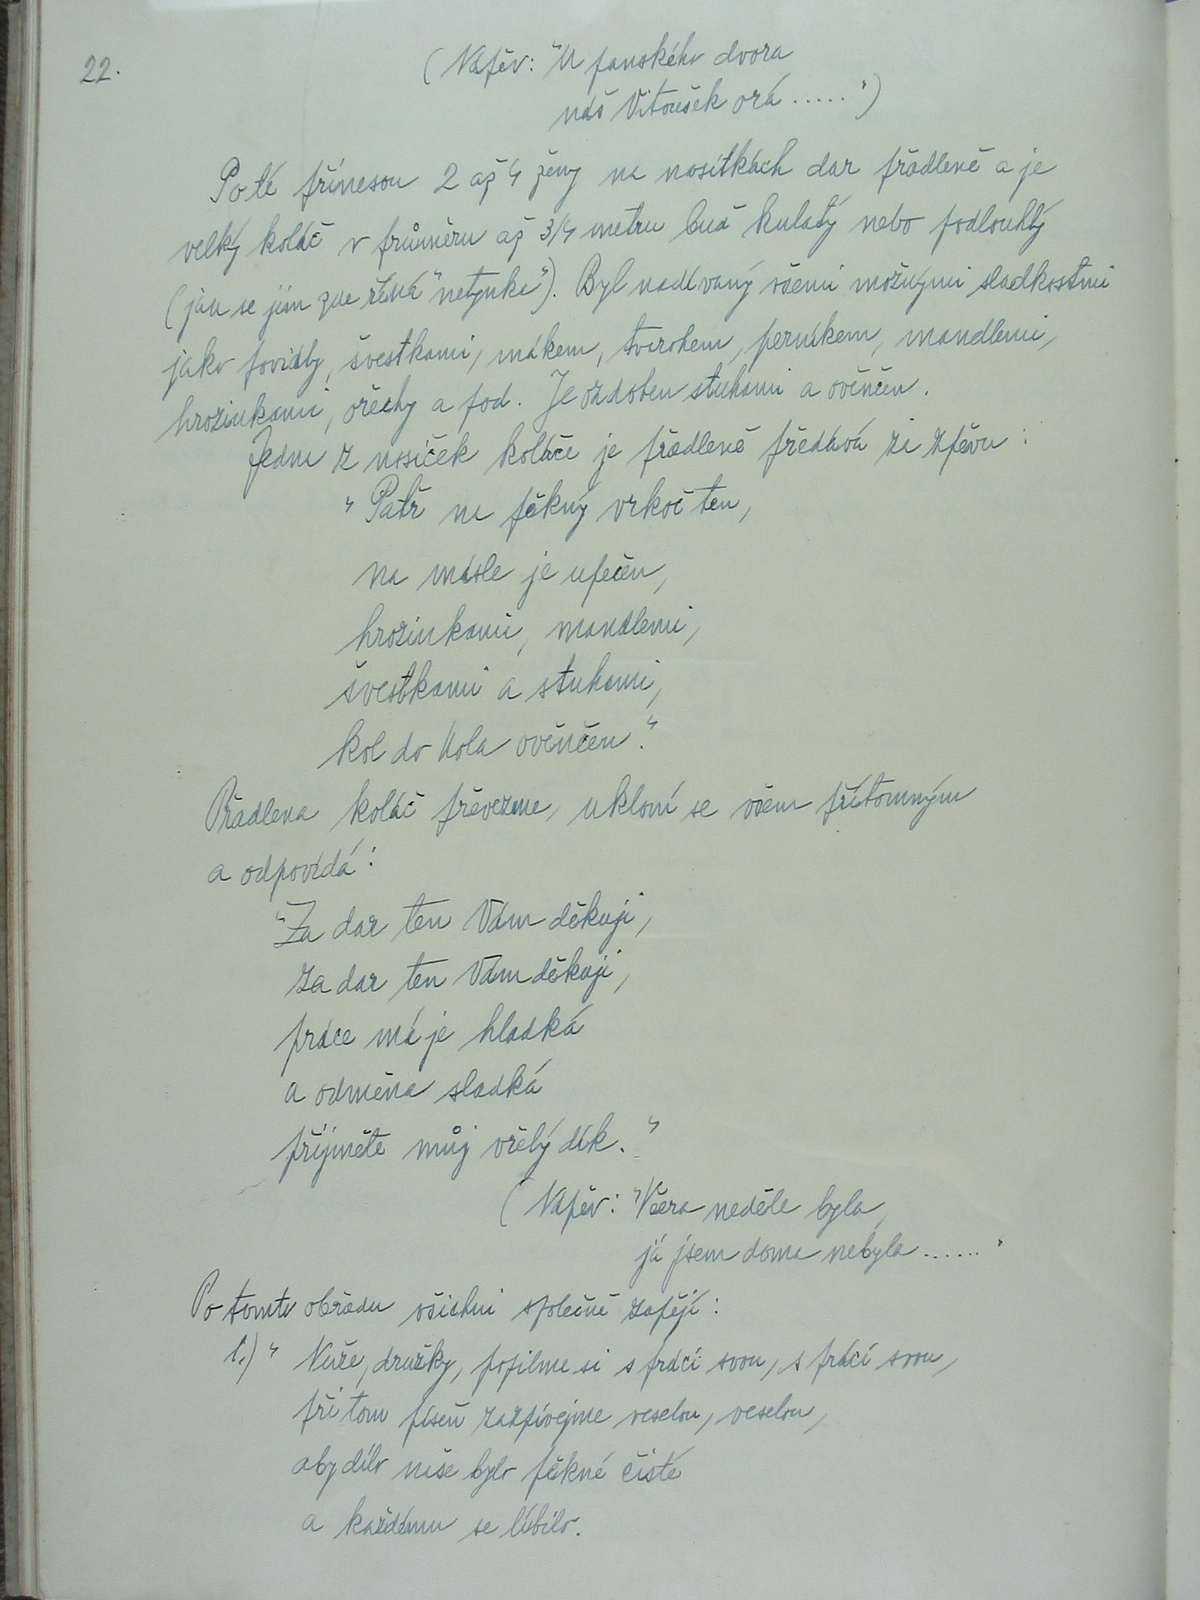 22.
(Nápěv: "U panského dvora
náš Vitoušek orá ....." )
Poté přinesou 2 až 4 ženy na nosítkách dar přadleně a je
velký koláč v průměru až 3/4 metru buď kulatý nebo podlouhlý
(jak se jim zde říká "netynke"). Byl nadívaný všemi možnými sladkostmi
jako povidly, švestkami, mákem, tvarohem, perníkem, mandlemi,
hrozinkami, ořechy a pod. Je ozdoben stuhami a ověnčen.
Jedna z nosiček koláče je přadleně předává za zpěvu :
" Patř na pěkný vrkoč ten,
na másle je upečen,
hrozinkami, mandlemi,
švestkami a stuhami,
kol do kola ověnčen."
Přadlena koláč převezme, ukloní se všem přítomným
a odpovídá :
"Za dar ten Vám děkuji,
za dar ten Vám děkuji,
práce má je hladká
a odměna sladká
přijměte můj vřelý dík. "
(Nápěv: "Včera neděle byla,
já jsem doma nebyla ...... "
Po tomto obřadu všichni společně zapějí :
1.) " Nuže, družky, pospilme si s prací svou, s prací svou,
při tom píseň zazpívejme veselou, veselou,
aby dílo naše bylo pěkné čisté
a každému se líbilo.